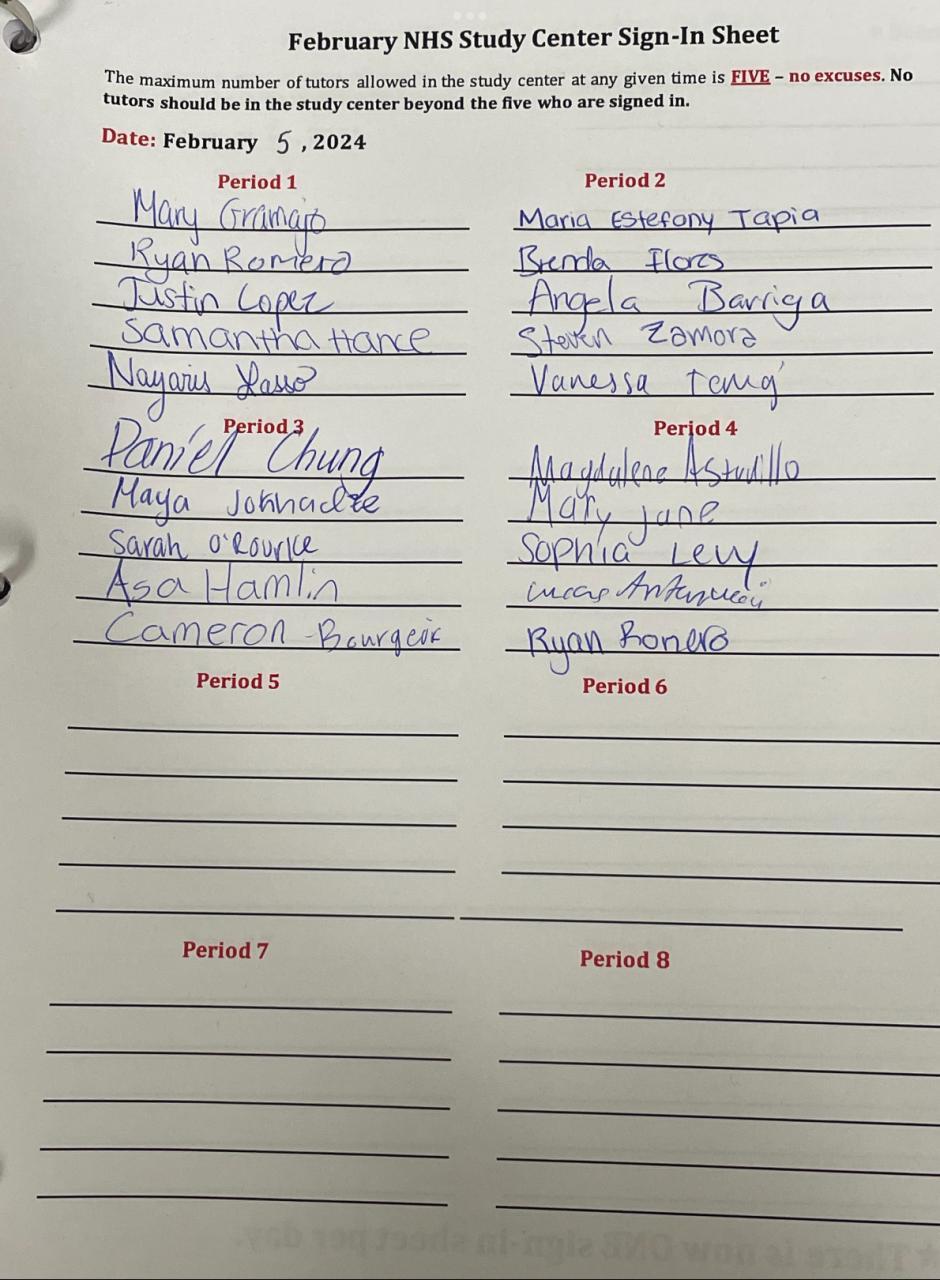 February NHS Study Center Sign-In Sheet
The maximum number of tutors allowed in the study center at any given time is FIVE – no excuses. No
tutors should be in the study center beyond the five who are signed in.
Date: February 5, 2024
Period 1
Mary Gramajo
Ryan Romero
Justin Lopez
Samantha Hance
Nayaris Lasso
Period 2
Maria Estefony Tapia
Brenda Flores
Angela Barriga
Steven Zamora
Vanessa
Period 3
Daniel Chung
Maya
Sarah O'Rourke
Asa Hamlin
Cameron Bourgeois
Period 4
Magdalena Astudillo
Mary Jane
Sophia Levy
Lucas
Ryan Romero
Period 5
Period 6
Period 7
Period 8
There is now ONE sign-in sheet per day.